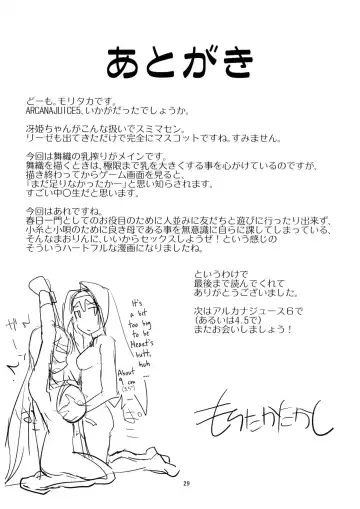 あとがき
どーも。モリタカです。
ARCANAJUICE5、いかがだったでしょうか。
冴姫ちゃんがこんな扱いでスミマセン。
リーゼも出てきただけで完全にマスコットですね。すみません。
今回は舞織の乳搾りがメインです。
舞織を描くときは、極限まで乳を大きくする事を心がけているのですが、
描き終わってからゲーム画面を見ると、
「まだ足りなかったかー」と思い知らされます。
すごい中〇生だと思います。
今回はあれですね。
春日一門としてのお役目のために人並みに友だちと遊びに行ったり出来ず、
小糸と小唄の良き母である事を無意識に自らに課してしまっている、
そんなまおりんに、いいからセックスしようぜ！という感じの
そういうハートフルな漫画になりましたね。
というわけで
最後まで読んでくれて
ありがとうございました。
次はアルカナジュース６で
(あるいは4.5で)
またお会いしましょう！
It's
a bit
too big
to be
Heart's
butt,
huh
About
9 cm
(3.5")
もりたかたかし
29